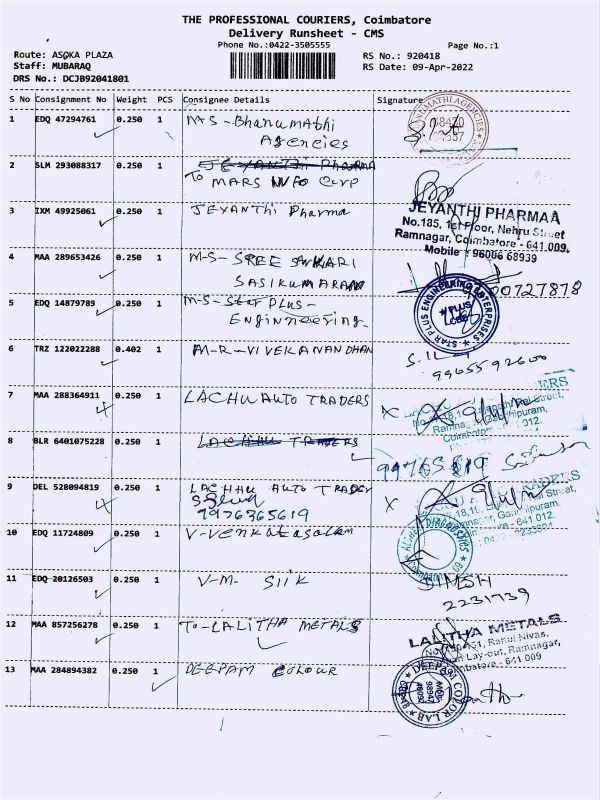 THE PROFESSIONAL COURIERS, Coimbatore
Delivery Runsheet - CMS
Phone No.:0422-3505555
Page No.:1
Route: ASOKA PLAZA
Staff: MUBARAQ
DRS No.: DCJB92041801
RS No.: 920418
RS Date: 09-Apr-2022
S No Consignment No Weight PCS Consignee Details Signature
1 EDQ 47294761 0.250 1 M/S - Bhanumathi
Agencies
2 SLM 293088317 0.250 1 JEYANTHI PHARMA
To MARS INFO Corp
3 IXM 49925061 0.250 1 JEYANTHI Pharma
JEYANTHI PHARMAA
No.185, 1st Floor, Nehru Street
Ramnagar, Coimbatore - 641 009.
Mobile : 96006 68939
4 MAA 289653426 0.250 1 M-S- SREE SANKARI
SASIKUMARAN
5 EDQ 14879789 0.250 1 M-S- Star PLUS-
Enginneering
STAR PLUS ENGINEERING ENTERPRISES
6 TRZ 122022288 0.402 1 M-R-VIVEKANANDHAN
9965592600
7 MAA 288364911 0.250 1 LACHU AUTO TRADERS
8 BLR 6401075228 0.250 1 LACHHU TRADERS
9 DEL 528094819 0.250 1 LACHHU AUTO TRADER
7976365619
10 EDQ 11724809 0.250 1 V-Venkatasalam
11 EDQ 20126503 0.250 1 V-M- Silk
DINESH
2231739
12 MAA 857256278 0.250 1 To-LALITHA METALS
LALITHA METALS
Rahul Nivas,
Lay-out, Ramnagar,
Coimbatore - 641 009
13 MAA 284894382 0.250 1 DEEPAM COLOUR
DEEPAM COLOR LAB